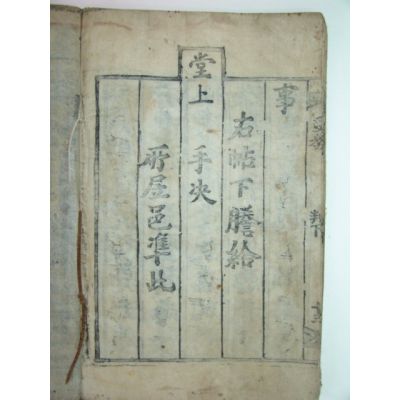 事
右帖下謄給
手决
堂上
所居邑準此